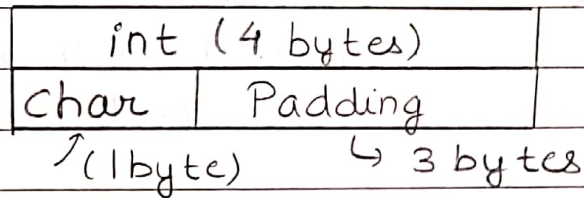 int (4 bytes)
char Padding
(1byte) ↳ 3 bytes